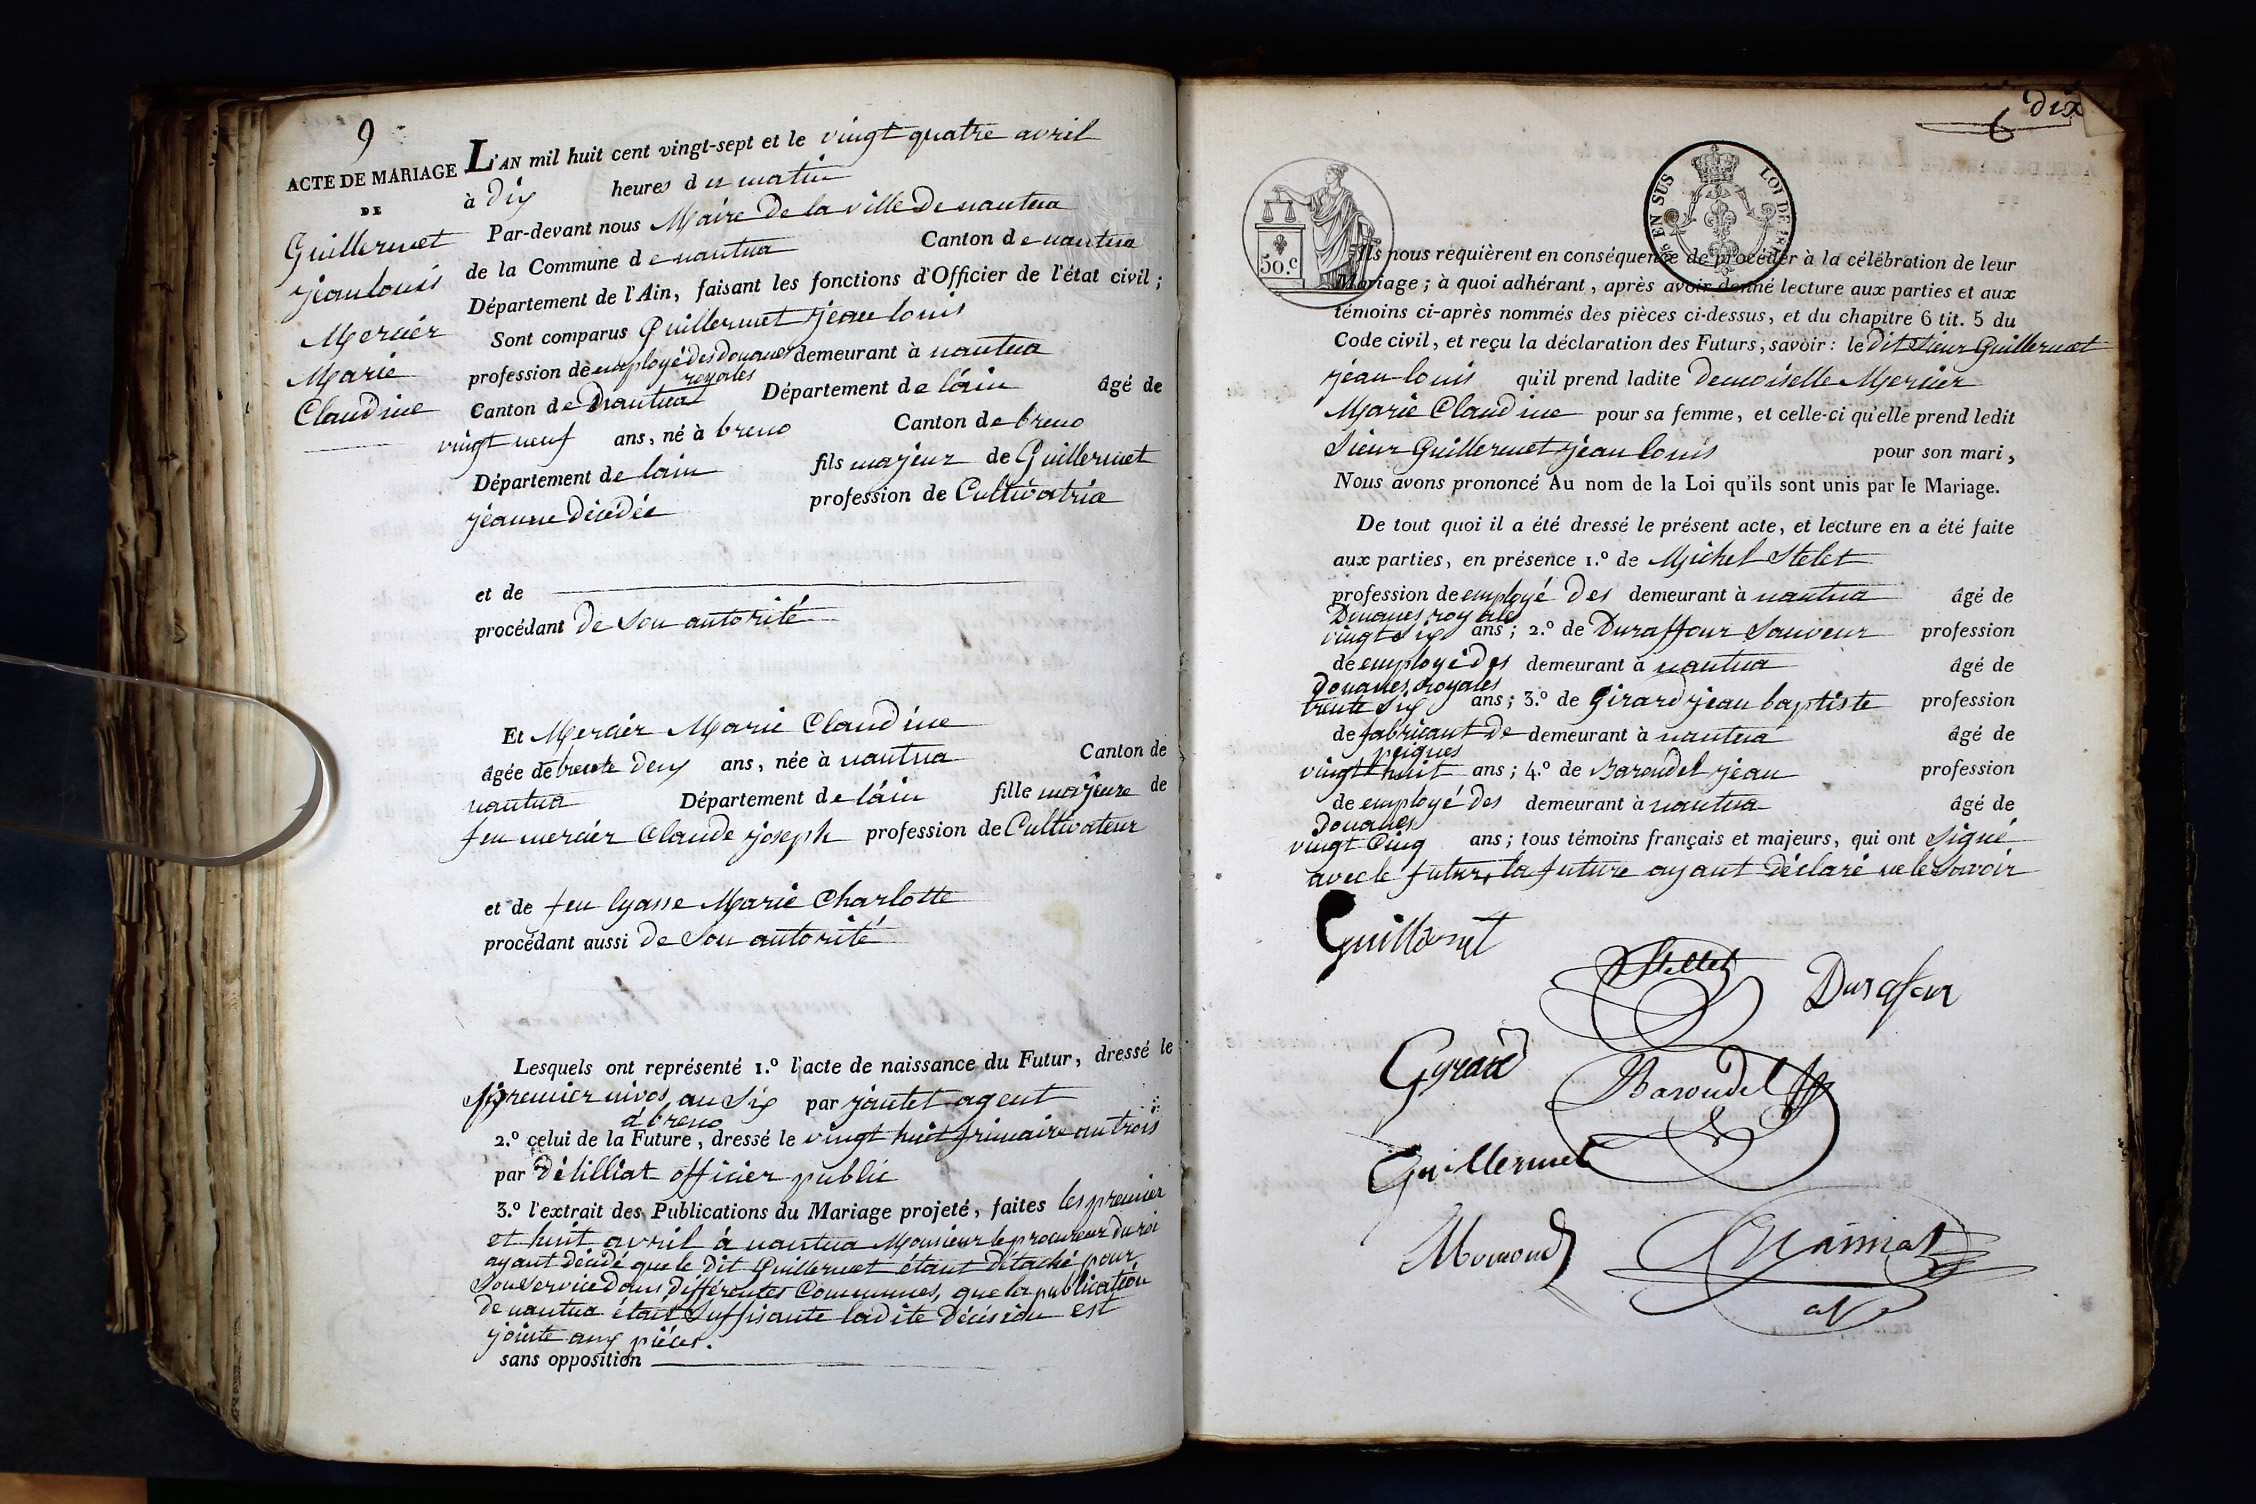 9
ACTE DE MARIAGE
DE
Guillermet
jean louis
Mercier
Marie
Claudine
L'AN mil huit cent vingt-sept et le vingt quatre avril
à dix heures du matin
Par-devant nous Maire de la ville de nantua
de la Commune de nantua Canton de nantua
Département de l'Ain, faisant les fonctions d'Officier de l'état civil ;
Sont comparus Guillermet jean louis
profession de employé des douanes demeurant à nantua
royales
Canton de nantua Département de láin âgé de
vingt neuf ans, né à breno Canton de breno
Département de lain fils majeur de Guillermet
jeanne décédée profession de Cultivatrice
et de
procédant de son autorité
Et Mercier Marie Claudine
âgée de trente deux ans, née à nantua Canton de
nantua Département de láin fille majeure de
feu mercier Claude joseph profession de Cultivateur
et de feu lyasse Marie Charlotte
procédant aussi de son autorité
Lesquels ont représenté 1.º l'acte de naissance du Futur, dressé le
premier nivos an six par jantet agent
à breno
2.º celui de la Future, dressé le vingt huit frimaire an trois
par délilliat officier public
3.º l'extrait des Publications du Mariage projeté, faites les premier
et huit avril à nantua Monsieur le procureur du roi
ayant décidé que le dit Guillermet étant détaché pour
son service dans différentes Communes, que la publication
de nantua étant suffisante ladite décision est
jointe aux pièces.
sans opposition
dix
50.c
EN SUS
LOI DE
Ils nous requièrent en conséquence de procéder à la célébration de leur
Mariage ; à quoi adhérant, après avoir donné lecture aux parties et aux
témoins ci-après nommés des pièces ci-dessus, et du chapitre 6 tit. 5 du
Code civil, et reçu la déclaration des Futurs, savoir : le dit sieur Guillermet
jean louis qu'il prend ladite demoiselle Mercier
Marie Claudine pour sa femme, et celle-ci qu'elle prend ledit
sieur Guillermet jean louis pour son mari,
Nous avons prononcé Au nom de la Loi qu'ils sont unis par le Mariage.
De tout quoi il a été dressé le présent acte, et lecture en a été faite
aux parties, en présence 1.º de Michel Stelet
profession de employé des demeurant à nantua âgé de
Douanes royales
vingt six ans ; 2.º de Duraffour Sauveur profession
de employé des demeurant à nantua âgé de
douanes royales
trente six ans ; 3.º de Girard jean baptiste profession
de fabricant de demeurant à nantua âgé de
peignes
vingt huit ans ; 4.º de Baroudel jean profession
de employé des demeurant à nantua âgé de
douanes
vingt cinq ans ; tous témoins français et majeurs, qui ont signé
avec le futur, la future ayant déclaré ne le savoir
Guillermet
Stellet
Durafour
Gyrard
Baroudel
Guillermet